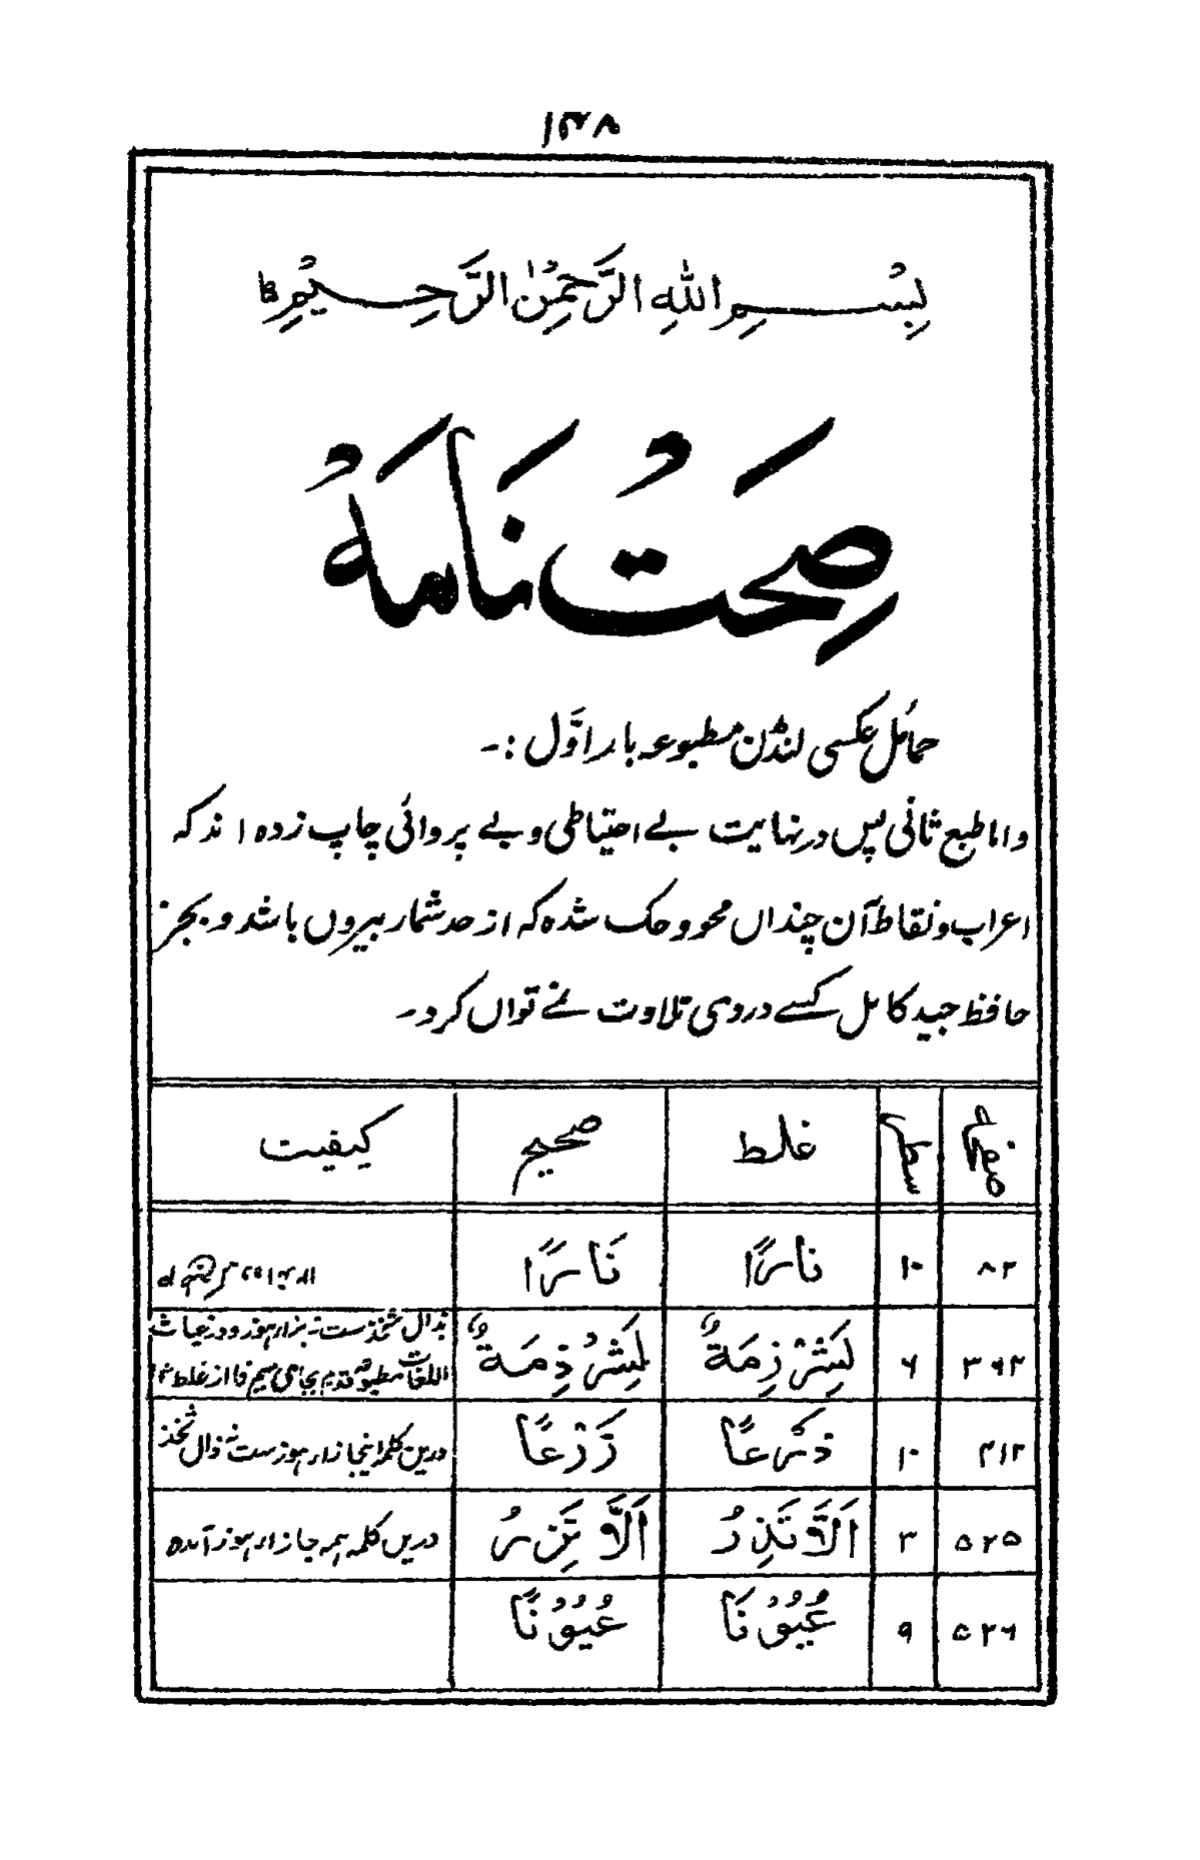 ۱۴۸
بِسْمِ اللهِ الرَّحْمٰنِ الرَّحِيْمِ
صِحَتُ نَامَهُ
حمائل عکسی لنڈن مطبوعہ بار اوّل :۔
واما طبع ثانی پس در نہایت بے احتیاطی و بے پروائی چاپ زدہ اند کہ
اعراب و نقاط آن چنداں محو و حک شدہ کہ از حد شمار بیروں باشد و بجز
حافظ جید کامل کسے در وی تلاوت نمے تواں کرد۔
صفحہ سطر غلط صحیح کیفیت
۸۲ ۱۰ نارًا نَارًا
۳۶۲ ۶ لَشِرْزِمَةٌ لَشِرْذِمَةٌ بذال ثخذ ست نہ بزاء ہوز و در غیاث
اللغات مطبوعہ قدیم بجای میم فا از غلط
۴۱۲ ۱۰ ذَرْعًا زَرْعًا درین کلمہ اینجا زاء ہوز ست نہ ذال ثخذ
۵۲۵ ۳ اَلَّا تَذِرُ اَلَّا تَزِرُ دریں کلمہ ہمہ جا زاء ہوز آمدہ
۵۲۶ ۹ عُيُوْنًا